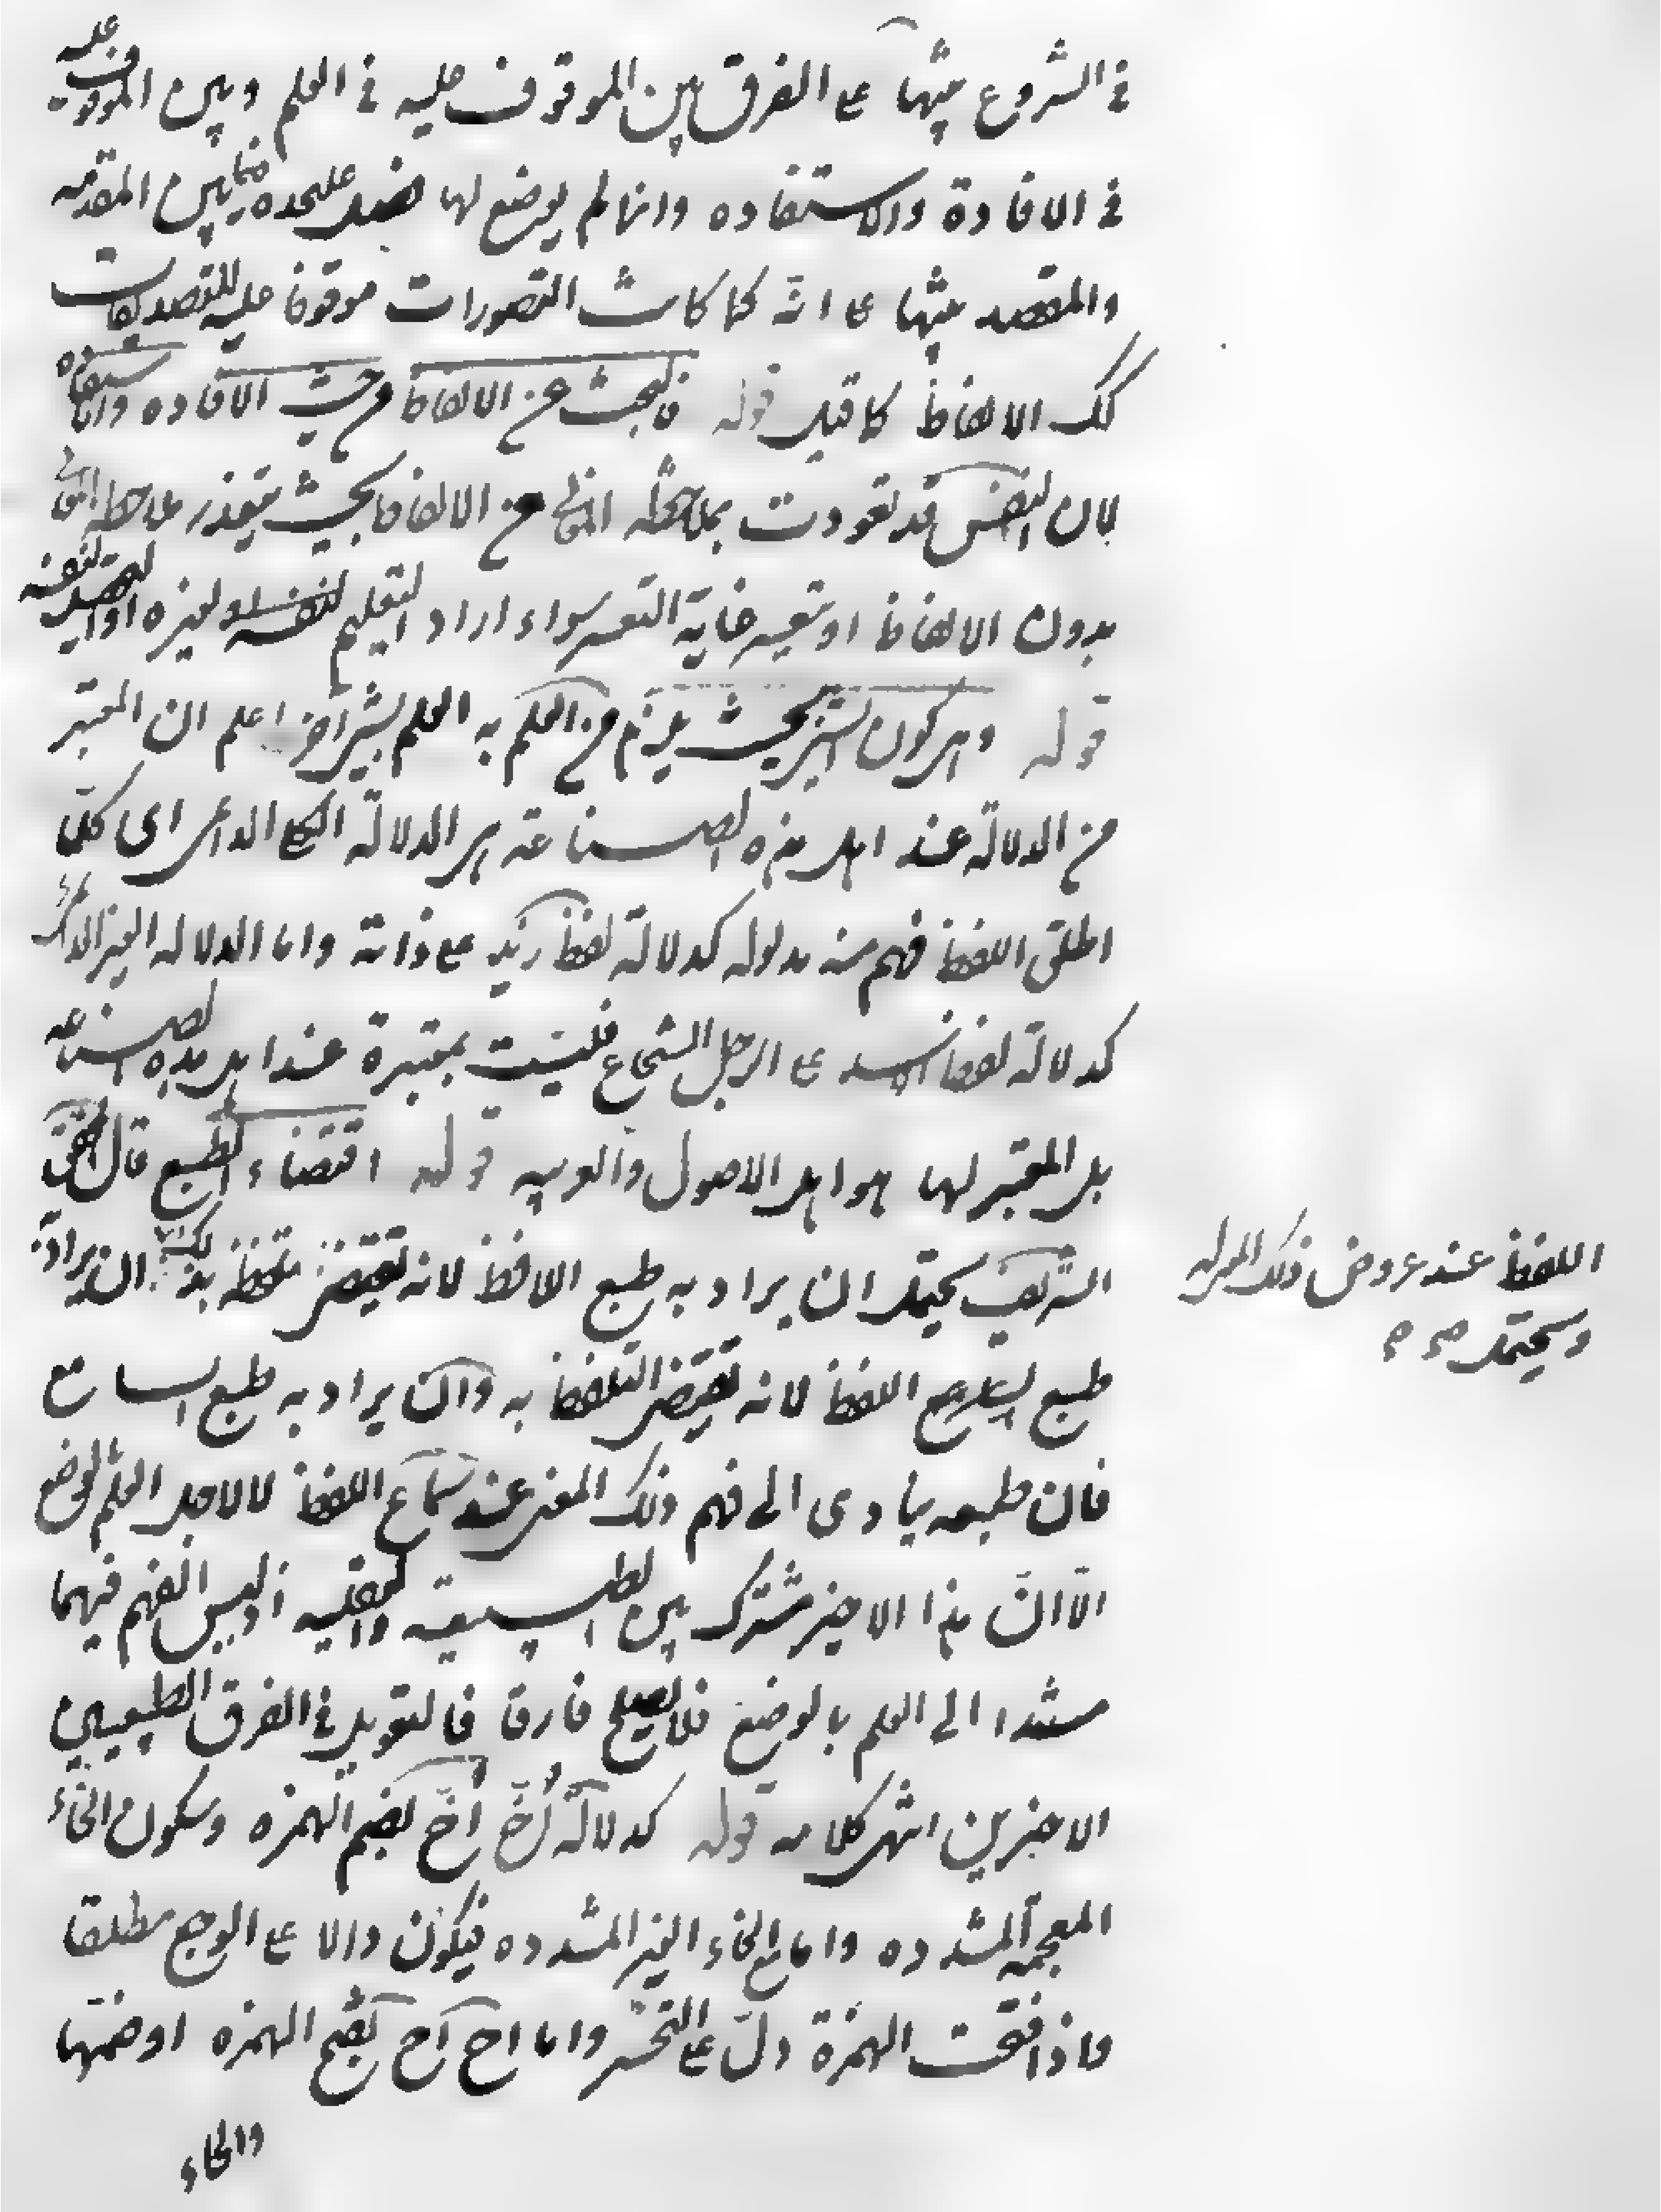 في الشروع تنبيها على الفرق بين الموقوف عليه في العلم وبين الموقوف عليه
في الافادة والاستفاده وانما لم يوضع لها فصل عليحده فيما بين المقدمه
والمقصد تنبيها على انه كما كانت التصورات موقوفا عليه للتصديقات
كك الالفاظ كما قيل قوله فالبحث عن الالفاظ من حيث الافاده والاستفاده
لان النفس قد تعودت بملاحظه المعانى من الالفاظ بحيث يتعذر ملاحظه المعانى
بدون الالفاظ او يتعسر غاية التعسر سواء اراد التعليم لغيره او التحصيل لنفسه
قوله وهى كون الشئ بحيث يلزم من العلم به العلم بشئ آخر اعلم ان المعتبر
من الدلالة عند اهل هذه الصناعة هى الدلالة الكلى الدائمى اى كلما
اطلق اللفظ فهم منه مدلوله كدلالة لفظ زيد على ذاته واما الدلاله الغير الدائمى
كدلالة لفظ الاسد على الرجل الشجاع فليست بمعتبرة عند اهل هذه الصناعه
بل المعتبر لها هو اهل الاصول والعربيه قوله اقتضاء الطبع قال المحقق
الشريف يحتمل ان يراد به طبع اللافظ لانه يقتضى تلفظه بذلك ان يراد به
اللفظ عند عروض ذلك المعنى له
ويحتمل صح
طبع اللفظ لانه يقتضى التلفظ به وان يراد به طبع السامع
فان طبعه يتأدى الى فهم ذلك المعنى عند سماع اللفظ لا لاجل العلم بالوضع
الا ان هذا الاخير مشترك بين الطبيعية والعقليه اذ ليس الفهم فيهما
مستندا الى العلم بالوضع فلا يصلح فارقا فالتعويل في الفرق الطبيعيين
الاخيرين انتهى كلامه قوله كدلالة اُخّ اُخّ بضم الهمزه وسكون الخاء
المعجمه المشدده واما مع الخاء الغير المشدده فيكون دالا على الوجع مطلقا
واذا فتحت الهمزة دلّ على التحسر واما اح اح بفتح الهمزه او ضمها
والحاء